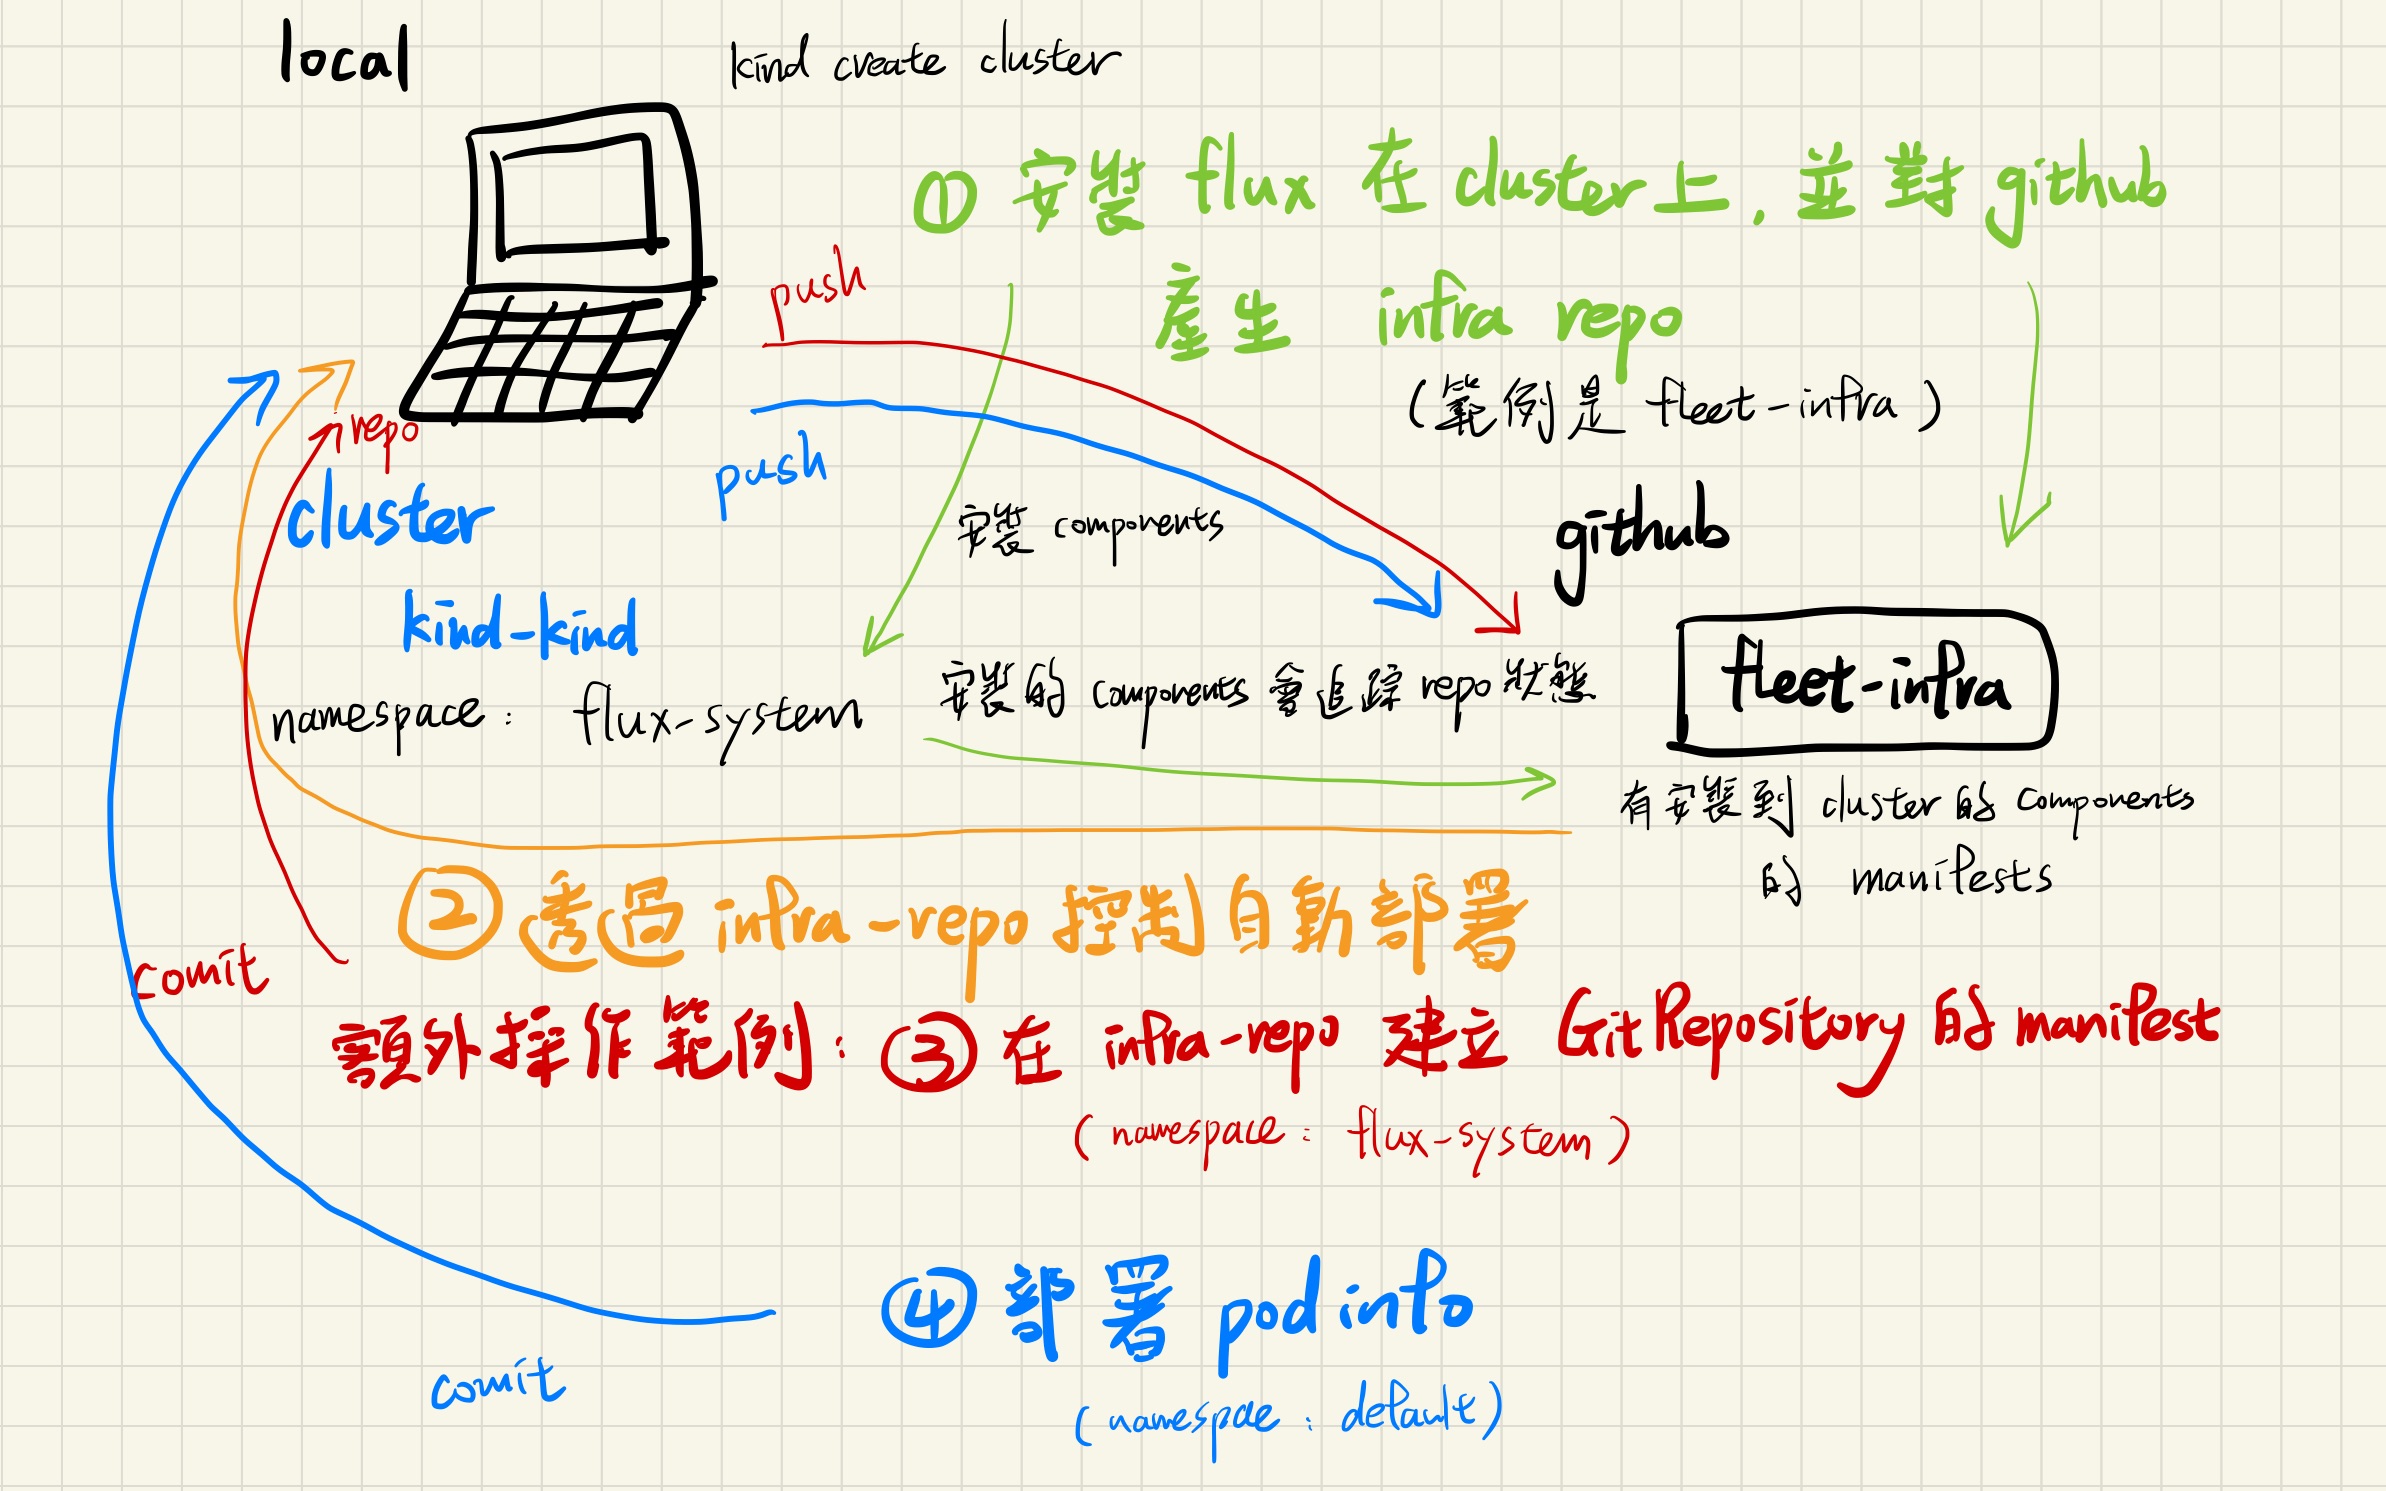 local
kind create cluster
① 安裝 flux 在 cluster 上, 並對 github
產生 infra repo
(範例是 fleet-infra)
push
push
repo
cluster
kind-kind
namespace : flux-system
安裝 components
github
安裝的 components 會追踪 repo 狀態
fleet-infra
有安裝到 cluster 的 components
的 manifests
② 透過 infra-repo 控制自動部署
comit
額外操作範例: ③ 在 infra-repo 建立 GitRepository 的 manifest
(namespace : flux-system)
④ 部署 podinfo
comit
(namespace : default)